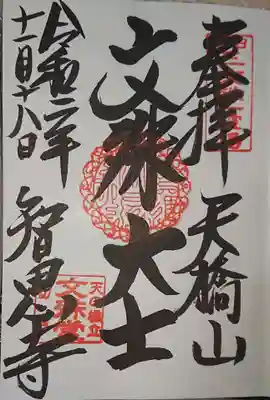 奉拝 天橋山
文殊大士
令和二年
十一月十八日 智恩寺
天の橋立
文殊堂